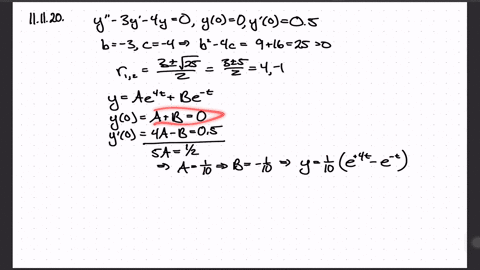 11.11.20. y''-3y'-4y=0, y(0)=0, y'(0)=0.5
b=-3, c=-4 ⇒ b²-4c = 9+16=25>0
r₁,₂ = (3±√25)/2 = (3±5)/2 = 4,-1
y=Ae^{4t}+Be^{-t}
y(0)= A+B=0
y'(0)= 4A-B=0.5
5A=1/2
⇒ A=1/10 ⇒ B=-1/10 ⇒ y=1/10(e^{4t}-e^{-t})